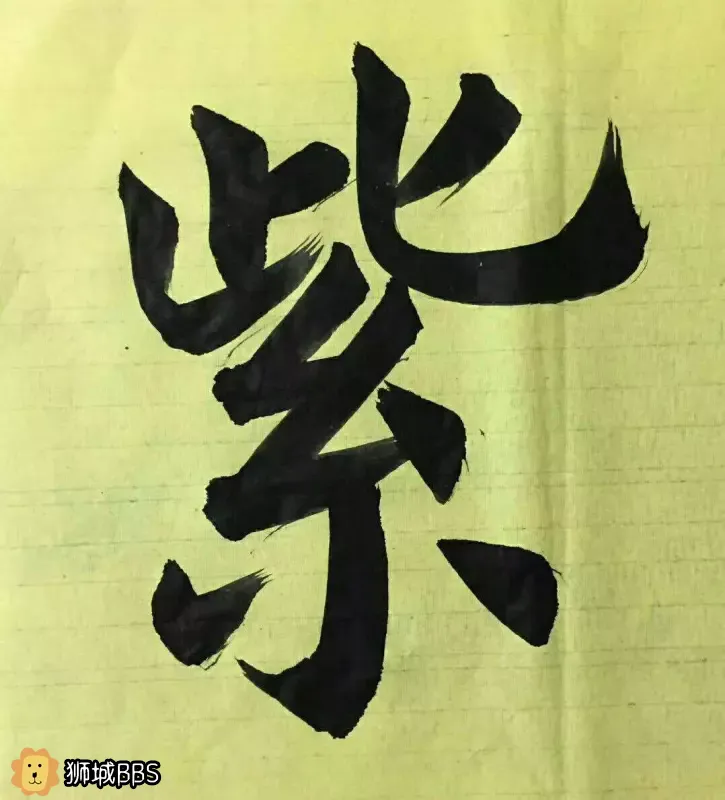 紫
狮城BBS